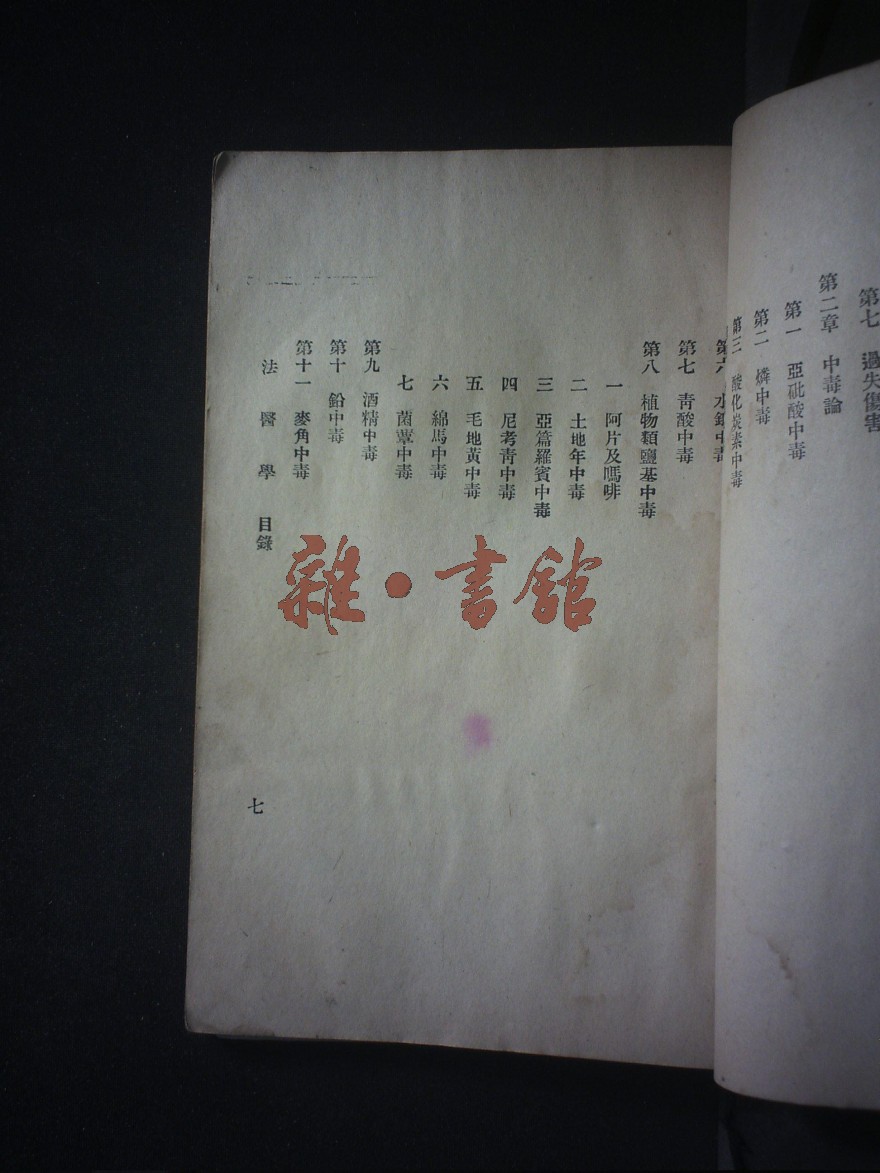 第七 過失傷害
第二章 中毒論
第一 亞砒酸中毒
第二 燐中毒
第三 酸化炭素中毒
第六 水銀中毒
第七 靑酸中毒
第八 植物類鹽基中毒
一 阿片及嗎啡
二 土地年中毒
三 亞篇羅賓中毒
四 尼考靑中毒
五 毛地黃中毒
六 綿馬中毒
七 菌蕈中毒
第九 酒精中毒
第十 鉛中毒
第十一 麥角中毒
法醫學 目錄
七
雜·書館